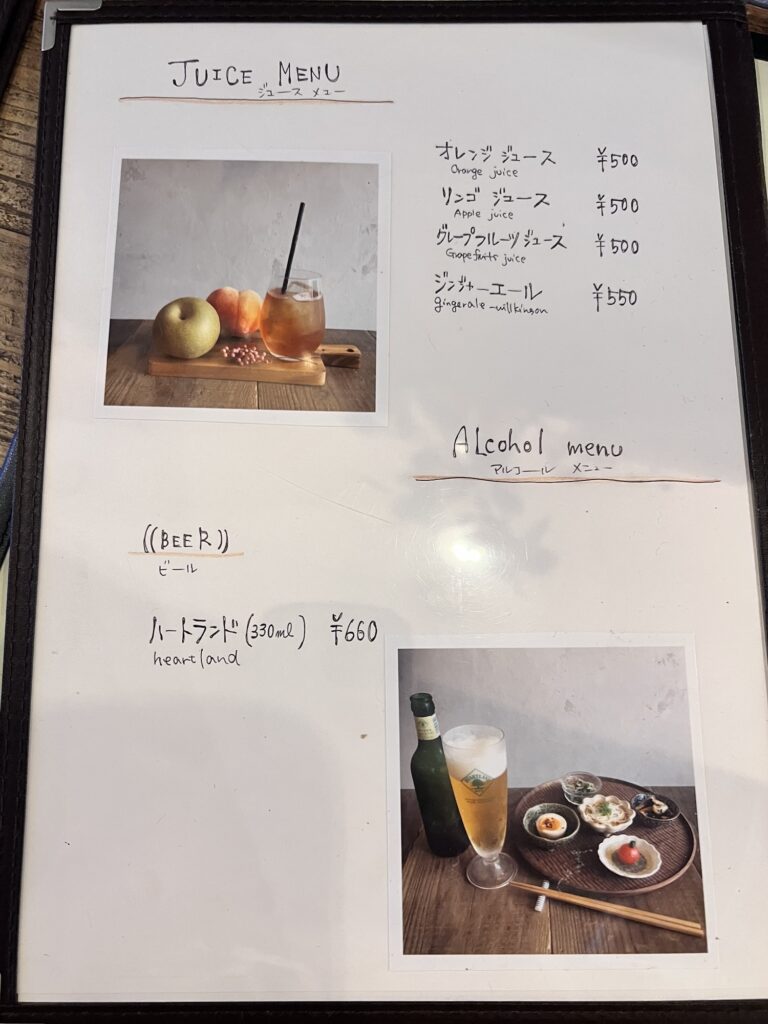 JUICE MENU
ジュース メュー
オレンジ ジュース ¥500
Orange juice
リンゴ ジュース ¥500
Apple juice
グレープフルーツ ジュース ¥500
Grapefruits juice
ジンジャーエール ¥550
gingerale -willkinson
ALcohol menu
アルコール メニュー
((BEER))
ビール
ハートランド (330ml) ¥660
heartland